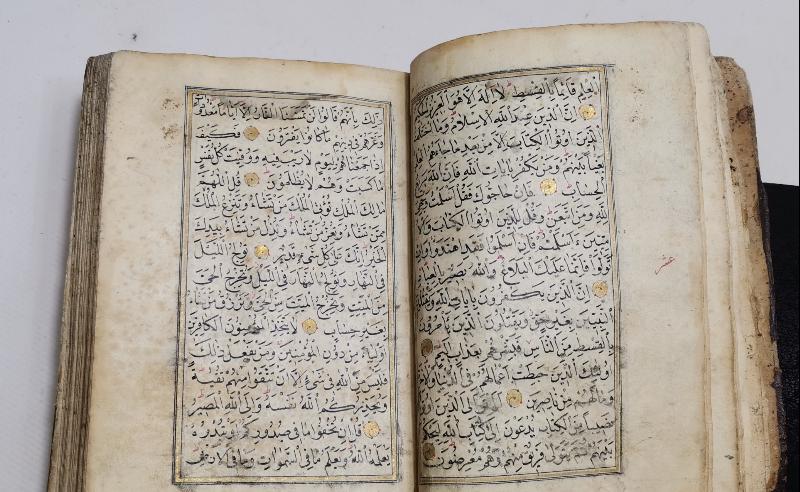 العلم قائما بالقسط لا اله الا هو العزيز
ان الدين عند الله الاسلام وما اختلف
الذين اوتوا الكتاب الا من بعد ما جاءهم العلم
بغيا بينهم ومن يكفر بايات الله فان الله
الحساب فان حاجوك فقل اسلمت
لله ومن اتبعن وقل للذين اوتوا الكتاب والا
ميين ءاسلمتم فان اسلموا فقد اهتدوا وان
تولوا فانما عليك البلاغ والله بصير
ان الذين يكفرون بايات الله ويقتلون
النبيين بغير حق ويقتلون الذين يامرون
بالقسط من الناس فبشرهم بعذاب اليم
اولئك الذين حبطت اعمالهم في الدنيا
وما لهم من ناصرين الم تر الى الذين اوتوا
نصيبا من الكتاب يدعون الى كتاب الله ليحكم
بينهم ثم يتولى فريق منهم وهم معرضون
عشر
ذلك بانهم قالوا لن تمسنا النار الا اياما معدودات
وغرهم في دينهم ما كانوا يفترون فكيف
اذا جمعناهم ليوم لا ريب فيه ووفيت كل نفس
ما كسبت وهم لا يظلمون قل اللهم
مالك الملك تؤتي الملك من تشاء وتنزع الملك
ممن تشاء وتعز من تشاء وتذل من تشاء بيدك
الخير انك على كل شيء قدير تولج الليل
في النهار وتولج النهار في الليل وتخرج الحي
من الميت وتخرج الميت من الحي وترزق من تشاء
بغير حساب لا يتخذ المؤمنون الكافرين
اولياء من دون المؤمنين ومن يفعل ذلك
فليس من الله في شيء الا ان تتقوا منهم تقية
ويحذركم الله نفسه والى الله المصير
قل ان تخفوا ما في صدوركم او تبدوه
يعلمه الله ويعلم ما في السموات وما في الارض